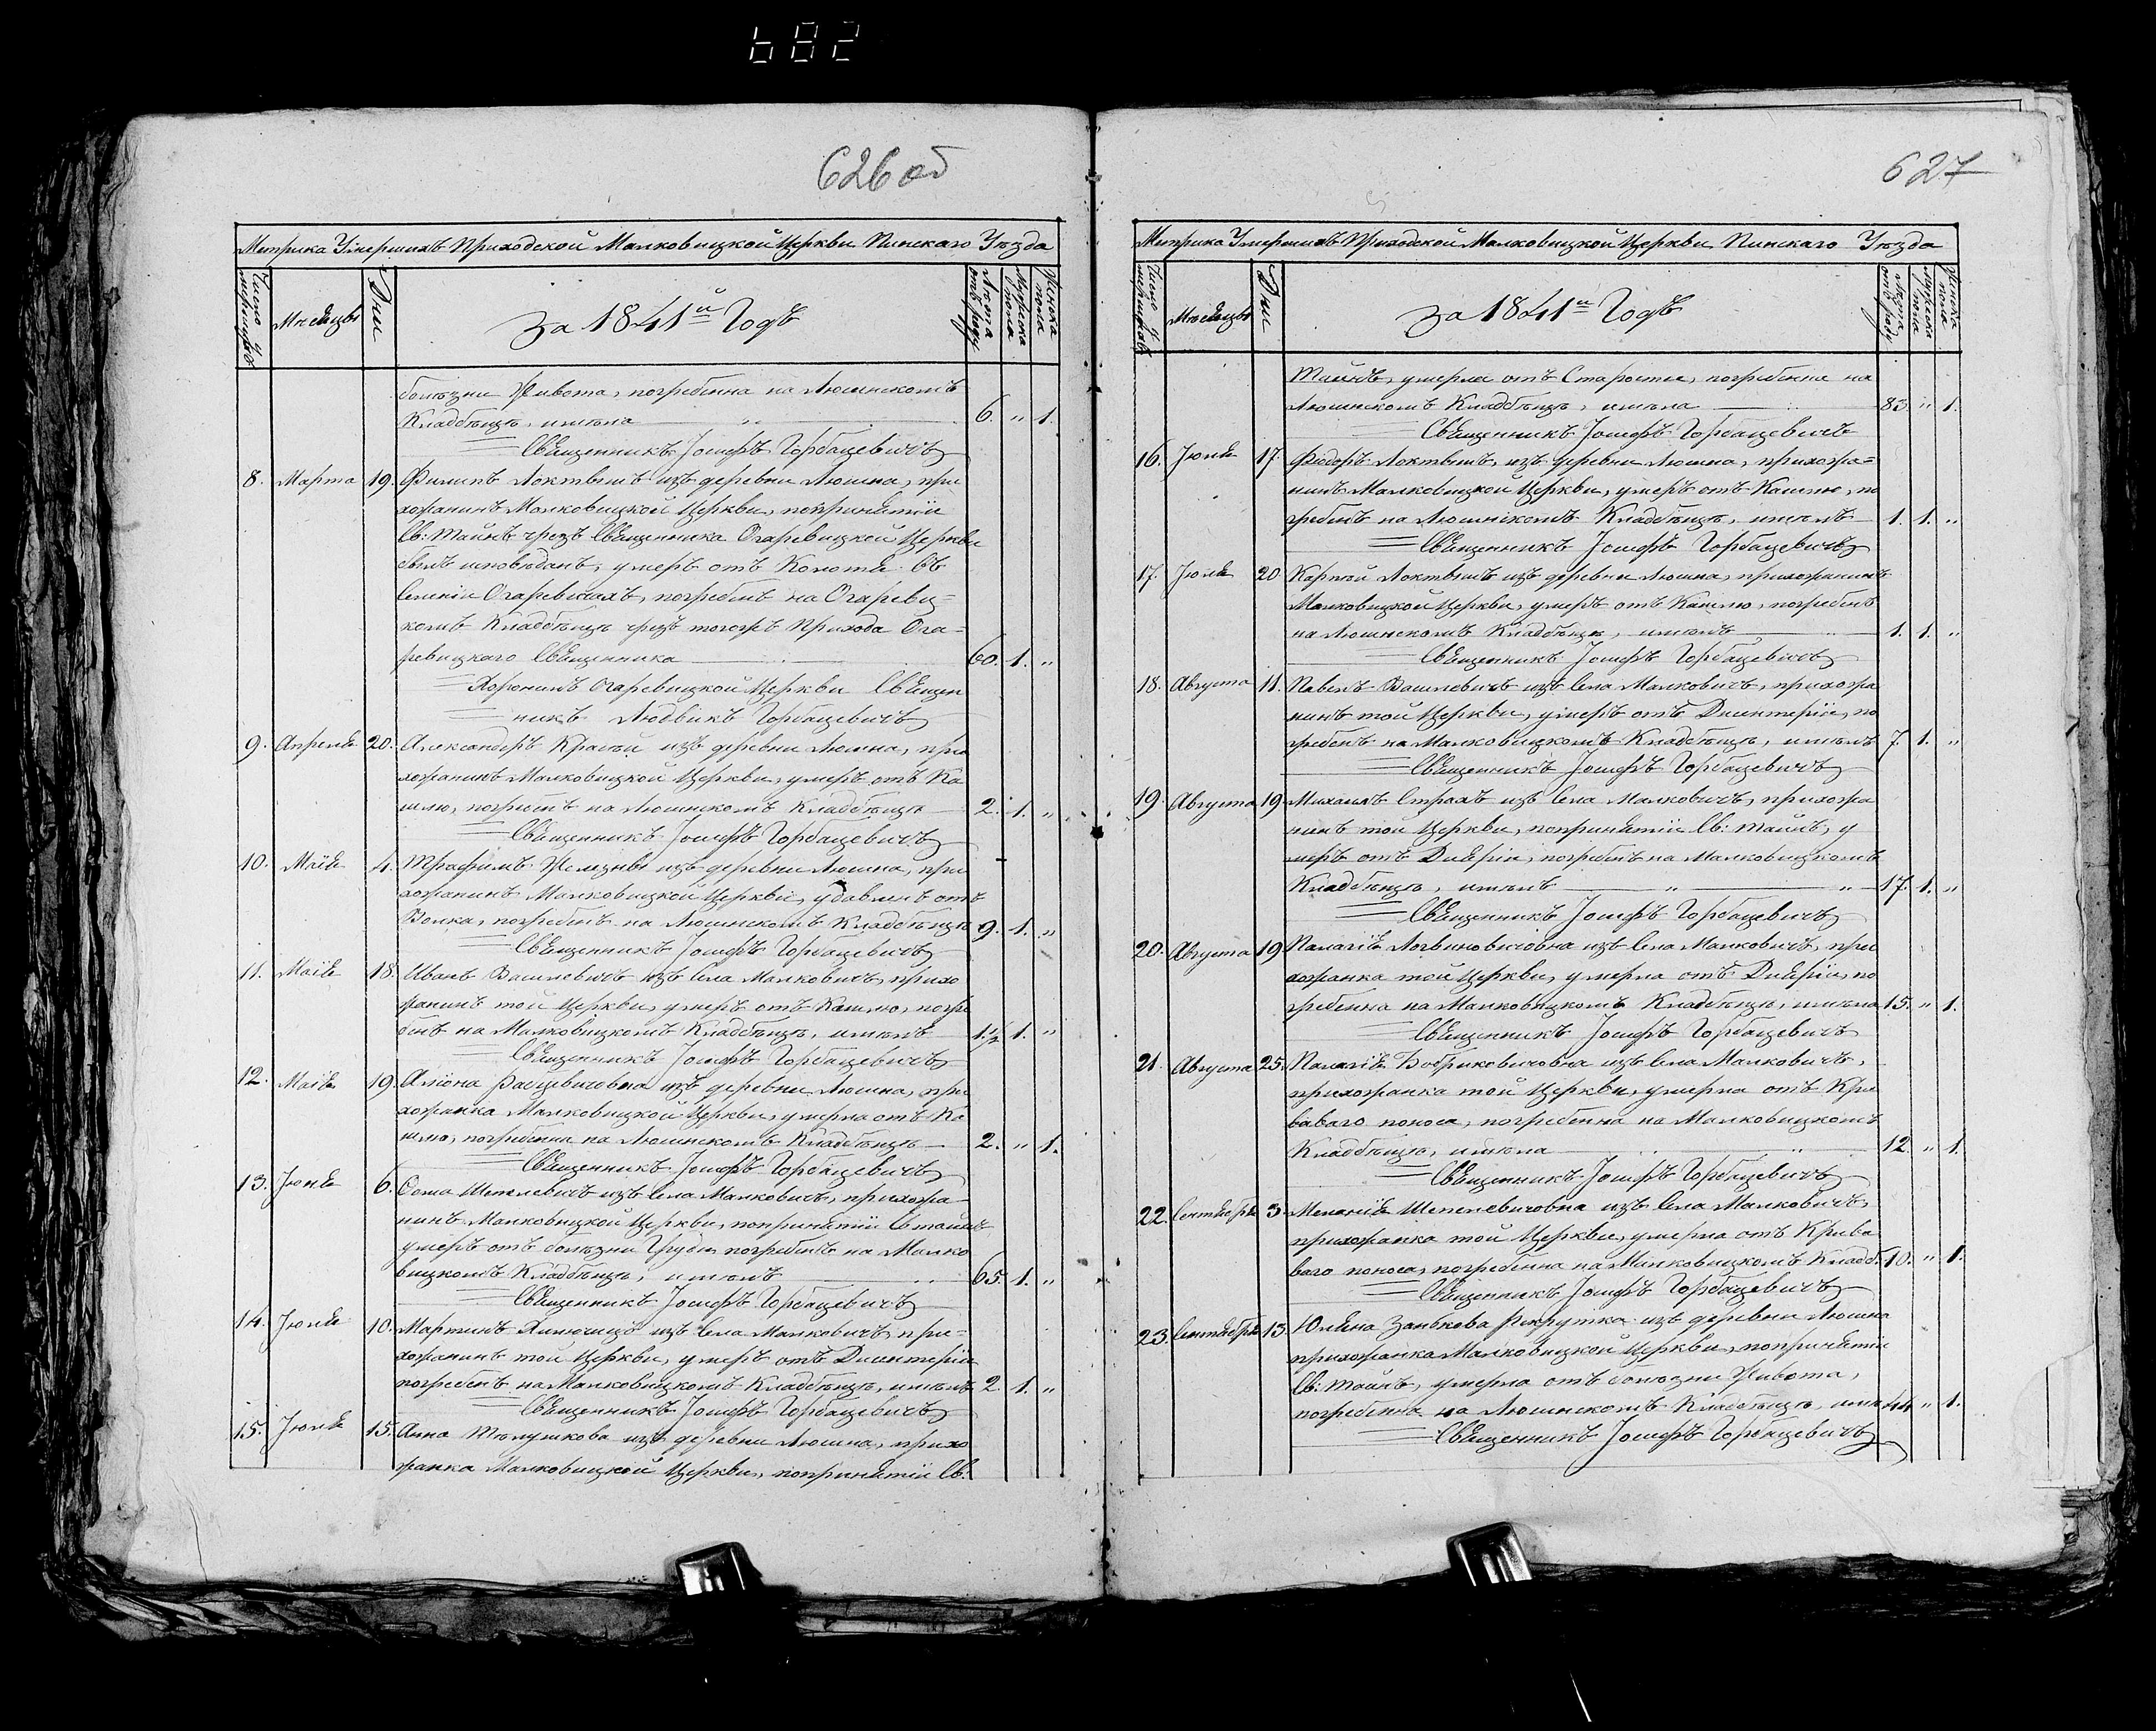 682
626 об
Метрика Умершихъ Приходской Малковицкой Церкви Пинскаго Уѣзда
Число умершихъ
Мѣсяцы
Дни
За 1841й Годъ
Лѣта отъ роду
Мужеска пола
Женска пола
болѣзни Живота, погребенна на Люшнскомъ
Кладбѣщѣ, имѣла 6. „ 1.
Священникъ Іосифъ Горбацевичъ
8. Марта 19. Филипъ Локтышъ изъ деревни Люшна, при
хожанинъ Малковицкой Церкви, попринятіи
Св: Тайнъ чрезъ Священника Огаревицкой Церкви
былъ исповѣданъ, умеръ отъ Колотя въ
Селеніи Огаревичахъ, погребенъ на Огаревиц=
комъ Кладбѣщѣ чрезъ тогожъ Прихода Ога=
ревицкаго Священника 60. 1. „
Хоронилъ Огаревицкой Церкви Священ
никъ Людвикъ Горбацевичъ
9. Апреля 20. Александръ Красный изъ деревни Люшна, при
хожанинъ Малковицкой Церкви, умеръ отъ Ка
шлю, погребенъ на Люшнскомъ Кладбѣщѣ 2. 1. „
Священникъ Іосифъ Горбацевичъ
10. Маія 4. Трафимъ Железны изъ деревни Люшна, при
хожанинъ Малковицкой Церкви, удавленъ отъ
Волка, погребенъ на Люшнскомъ Кладбѣщѣ 9. 1. „
Священникъ Іосифъ Горбацевичъ
11. Маія 18. Иванъ Василевичъ изъ Села Малковичъ, прихо
жанинъ той Церкви, умеръ отъ Кашлю, погре
бенъ на Малковицкомъ Кладбѣщѣ, имѣлъ 1½ 1. „
Священникъ Іосифъ Горбацевичъ
12. Маія 19. Аліона Рацевичовна изъ деревни Люшна, при
хожанка Малковицкой Церкви, умерла отъ Ка
шлю, погребенна на Люшнскомъ Кладбѣщѣ 2. „ 1.
Священникъ Іосифъ Горбацевичъ
13. Іюня 6. Сома Шепелевичъ изъ Села Малковичъ, прихожа=
нинъ Малковицкой Церкви, попринятіи Св тайнъ
умеръ отъ болѣзни Груди погребенъ на Малко
вицкомъ Кладбѣщѣ, имѣлъ 65. 1. „
Священникъ Іосифъ Горбацевичъ
14. Іюля 10. Мартинъ Хилючицъ изъ Села Малковичъ, при=
хожанинъ той Церкви, умеръ отъ Дисинтеріи
погребенъ на Малковицкомъ Кладбѣщѣ, имѣлъ 2. 1. „
Священникъ Іосифъ Горбацевичъ
15. Іюля 15. Анна Толушкова изъ деревни Люшна, прихо
жанка Малковицкой Церкви, попринятіи Св:
627
Метрика Умершихъ Приходской Малковицкой Церкви Пинскаго Уѣзда
Число умершихъ
Мѣсяцы
Дни
За 1841й Годъ
Лѣта отъ роду
Мужеска пола
Женска пола
Тайнъ, умерла отъ Старости, погребенна на
Люшнскомъ Кладбѣщѣ, имѣла 83. „ 1.
Священникъ Іосифъ Горбацевичъ
16. Іюля 17. Фіодоръ Локтышъ, изъ деревни Люшна, прихожа=
нинъ Малковицкой Церкви, умеръ отъ Кашлю, по
гребенъ на Люшнскомъ Кладбѣщѣ, имѣлъ 1. 1. „
Священникъ Іосифъ Горбацевичъ
17. Іюля 20 Карпъ Локтышъ изъ деревни Люшна, прихожанинъ
Малковицкой Церкви, умеръ отъ Кашлю, погребенъ
на Люшнскомъ Кладбѣщѣ, имѣлъ 1. 1. „
Священникъ Іосифъ Горбацевичъ
18. Августа 11. Павелъ Василевичъ изъ Села Малковичъ, прихожа
нинъ той Церкви, умеръ отъ Дисинтеріи, по
гребенъ на Малковицкомъ Кладбѣщѣ, имѣлъ 7. 1. „
Священникъ Іосифъ Горбацевичъ
19. Августа 19. Михаилъ Страхъ изъ Села Малковичъ, прихожа
нинъ той Церкви, попринятіи Св: тайнъ, у
меръ отъ Діяріи, погребенъ на Малковицкомъ
Кладбѣщѣ, имѣлъ 17. 1. „
Священникъ Іосифъ Горбацевичъ
20. Августа 19 Палагія Логвиновичовна изъ Села Малковичъ, при
хожанка той Церкви, умерла отъ Діяріи, по
гребенна на Малковицкомъ Кладбѣщѣ, имѣла 15. „ 1.
Священникъ Іосифъ Горбацевичъ
21. Августа 25. Палагія Бобриковичовна изъ Села Малковичъ,
прихожанка той Церкви, умерла отъ Кри
ваваго поноса, погребенна на Малковицкомъ
Кладбѣщѣ, имѣла 12. „ 1.
Священникъ Іосифъ Горбацевичъ
22. Сентября 3. Меланія Шепелевичовна изъ Села Малковичъ,
прихожанка той Церкви, умерла отъ Крива
ваго поноса, погребенна на Малковицкомъ Кладб. 10. „ 1.
Священникъ Іосифъ Горбацевичъ
23. Сентября 13. Юліяна Занькова рекрутка изъ деревни Люшна
прихожанка Малковицкой Церкви, попринятіи
Св: Тайнъ, умерла отъ болѣзни Живота,
погребенна на Люшнскомъ Кладбѣщѣ, имѣ 44 „ 1.
Священникъ Іосифъ Горбацевичъ